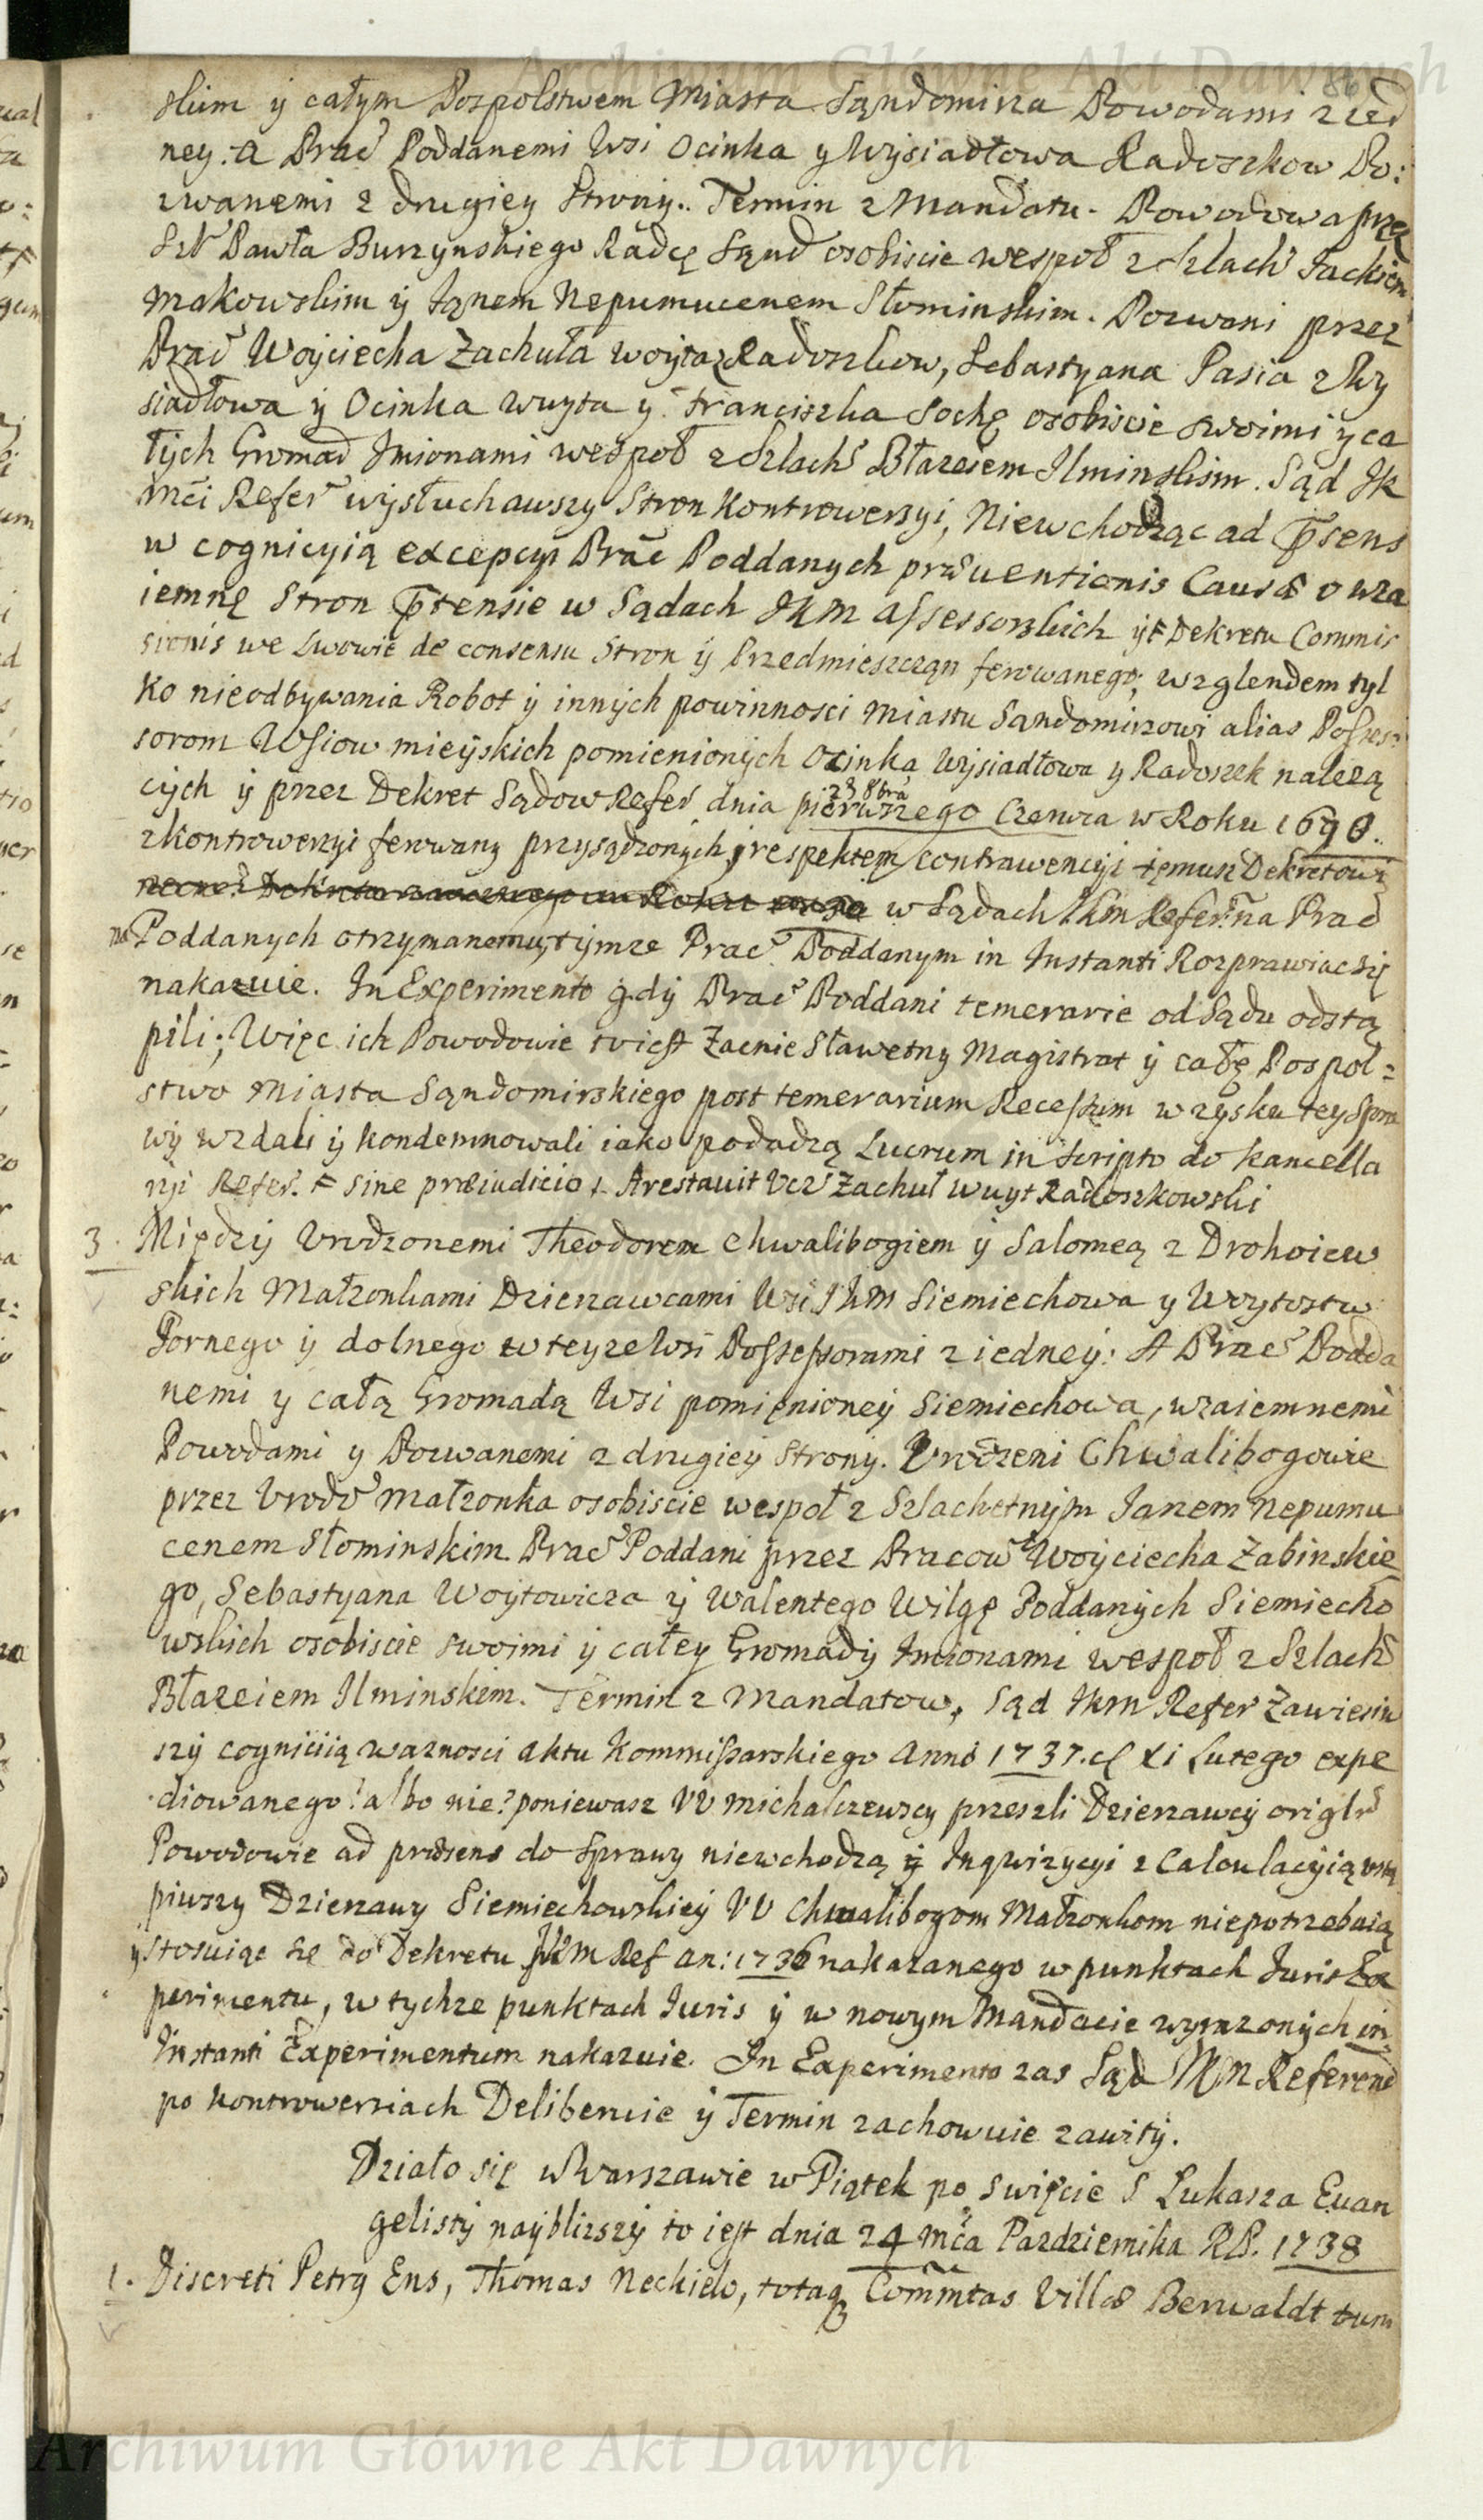 Archiwum Główne Akt Dawnych
86
skim ÿ całym Pospolstwem Miasta Sąndomirza Powodami z ied
ney: a Prac̃ Poddanemi Wsi Ocinka y Wysiadłowa Radoszkow Po:
zwanemi z drugiey Strony. Termin z Mandatu. Powodowa przez
Pawła Burzynskiego Radcę Sąnd osobiscie wespoł z Szlach Jackiem
Makowskim ÿ Janem Nepumucenem Słominskim. Pozwani przez
Prac̃ Woyciecha Zachuła woyta z Radoszkow, Sebastyana Pasia z Wy
siadłowa ÿ Ocinka wuyta y Franciszka Sochę osobiscie swoimi y ca
łych Gromad Imionami wespoł z Szlach Błazeiem Ilminskim. Sąd Jk
mci Refer wysłuchawszy Stron Kontrowersyi, Niewchodząc ad p̃sens
w cognicyią excepcyi Prac̃ Poddanych præuentionis Causæ o wza
iemnę Stron p̃tensie w Sądach JKM assessorskich ÿ Dekretu Commis
sionis we Lwowie de consensu Stron ÿ Przedmieszcząn ferowanego; wzglendem tyl
ko nieodbywania Robot ÿ innych powinnosci Miastu Sąndomirzowi alias Posses
sorom Wsiow mieyskich pomienionych Ocinka Wysiadłowa y Radoszek nalezą
cych ÿ przez Dekret Sądow Refer dnia pierwszego Czerwca w Roku 1698.
23 8bra
z kontrowersyi ferowany przysądzonych, respektem contrawencyi temusz Dekretowi
w Sądach JKM Refer: na Prac̃
Poddanych otrzymanemu, tymze Prac̃ Poddanym in Instanti Rozprawiac się
nakazuie. In Experimento gdy Prac̃ Poddani temerarie od Sądu odstą
pili; Więc ich Powodowie to iest Zacnie Sławetny Magistrat ÿ całę Pospol=
stwo Miasta Sąndomirskiego post temerarium Recessum w zysku tey Spra
wy wzdali ÿ kondemnowali iako podadzą Lucrum in Scripto do kancella
ryi Refer. sine præiudicio. Arestauit Zachuł wuyt Radoszkowski
3. Między Urodzonemi Theodorem Chwalibogiem ÿ Salomeą z Drohoiew
skich Małzonkami Dzierzawcami Wsi JKM Siemiechowa y Woytostw
Gornego ÿ dolnego w teyze Wsi Possessorami z iedney: A Prac̃ Podda
nemi y całą Gromadą Wsi pomienioney Siemiechowa, wzaiemnemi
Powodami y Pozwanemi z drugiey strony. Urodzeni Chwalibogowie
przez Urodz małzonka osobiscie wespoł z Szlachetnym Janem Nepumu
cenem Słominskim Prac̃ Poddani przez Pracow Woyciecha Zabinskie
go, Sebastyana Woytowicza ÿ Walentego Wilgę Poddanych Siemiecho
wskich osobiscie swoimi ÿ całey Gromady Imionami wespoł z Szlach
Błazeiem Ilminskim. Termin z Mandatow, Sąd JKM Refer Zawiesiw
szy cognicią waznosci aktu Kommissarskiego Anno 1737. XI Lutego expe
diowanego? albo nie? poniewasz UU Michalczewscy przeszli Dzierzawcy
Powodowie ad præsens do Sprawy niewchodzą ÿ Inqwizycyi z Calculacyią ustą
piwszy Dzierzawy Siemiechowskiey UU Chwalibogom Małzonkom niepotrzebuią
ÿ stosuiąc się do Dekretu JKM Ref an: 1736 nakazanego w punktach Juris Ex
perimentu, w tychze punktach Juris ÿ w nowym Mandacie wyrazonych in
Instanti Experimentum nakazuie. In Experimento zas Sąd JKM Referend
po kontrowersiach Deliberuie ÿ Termin zachowuie zawity.
Działo się w Warszawie w Piątek po Swięcie S Lukasza Euan
gelisty naÿblizszy to iest dnia 24 Mca Pazdziernika R.P. 1738
1. Discreti Petrg Ens, Thomas Neckielo, totaqз Com̃mtas Villæ Berwaldt tum
Archiwum Główne Akt Dawnych